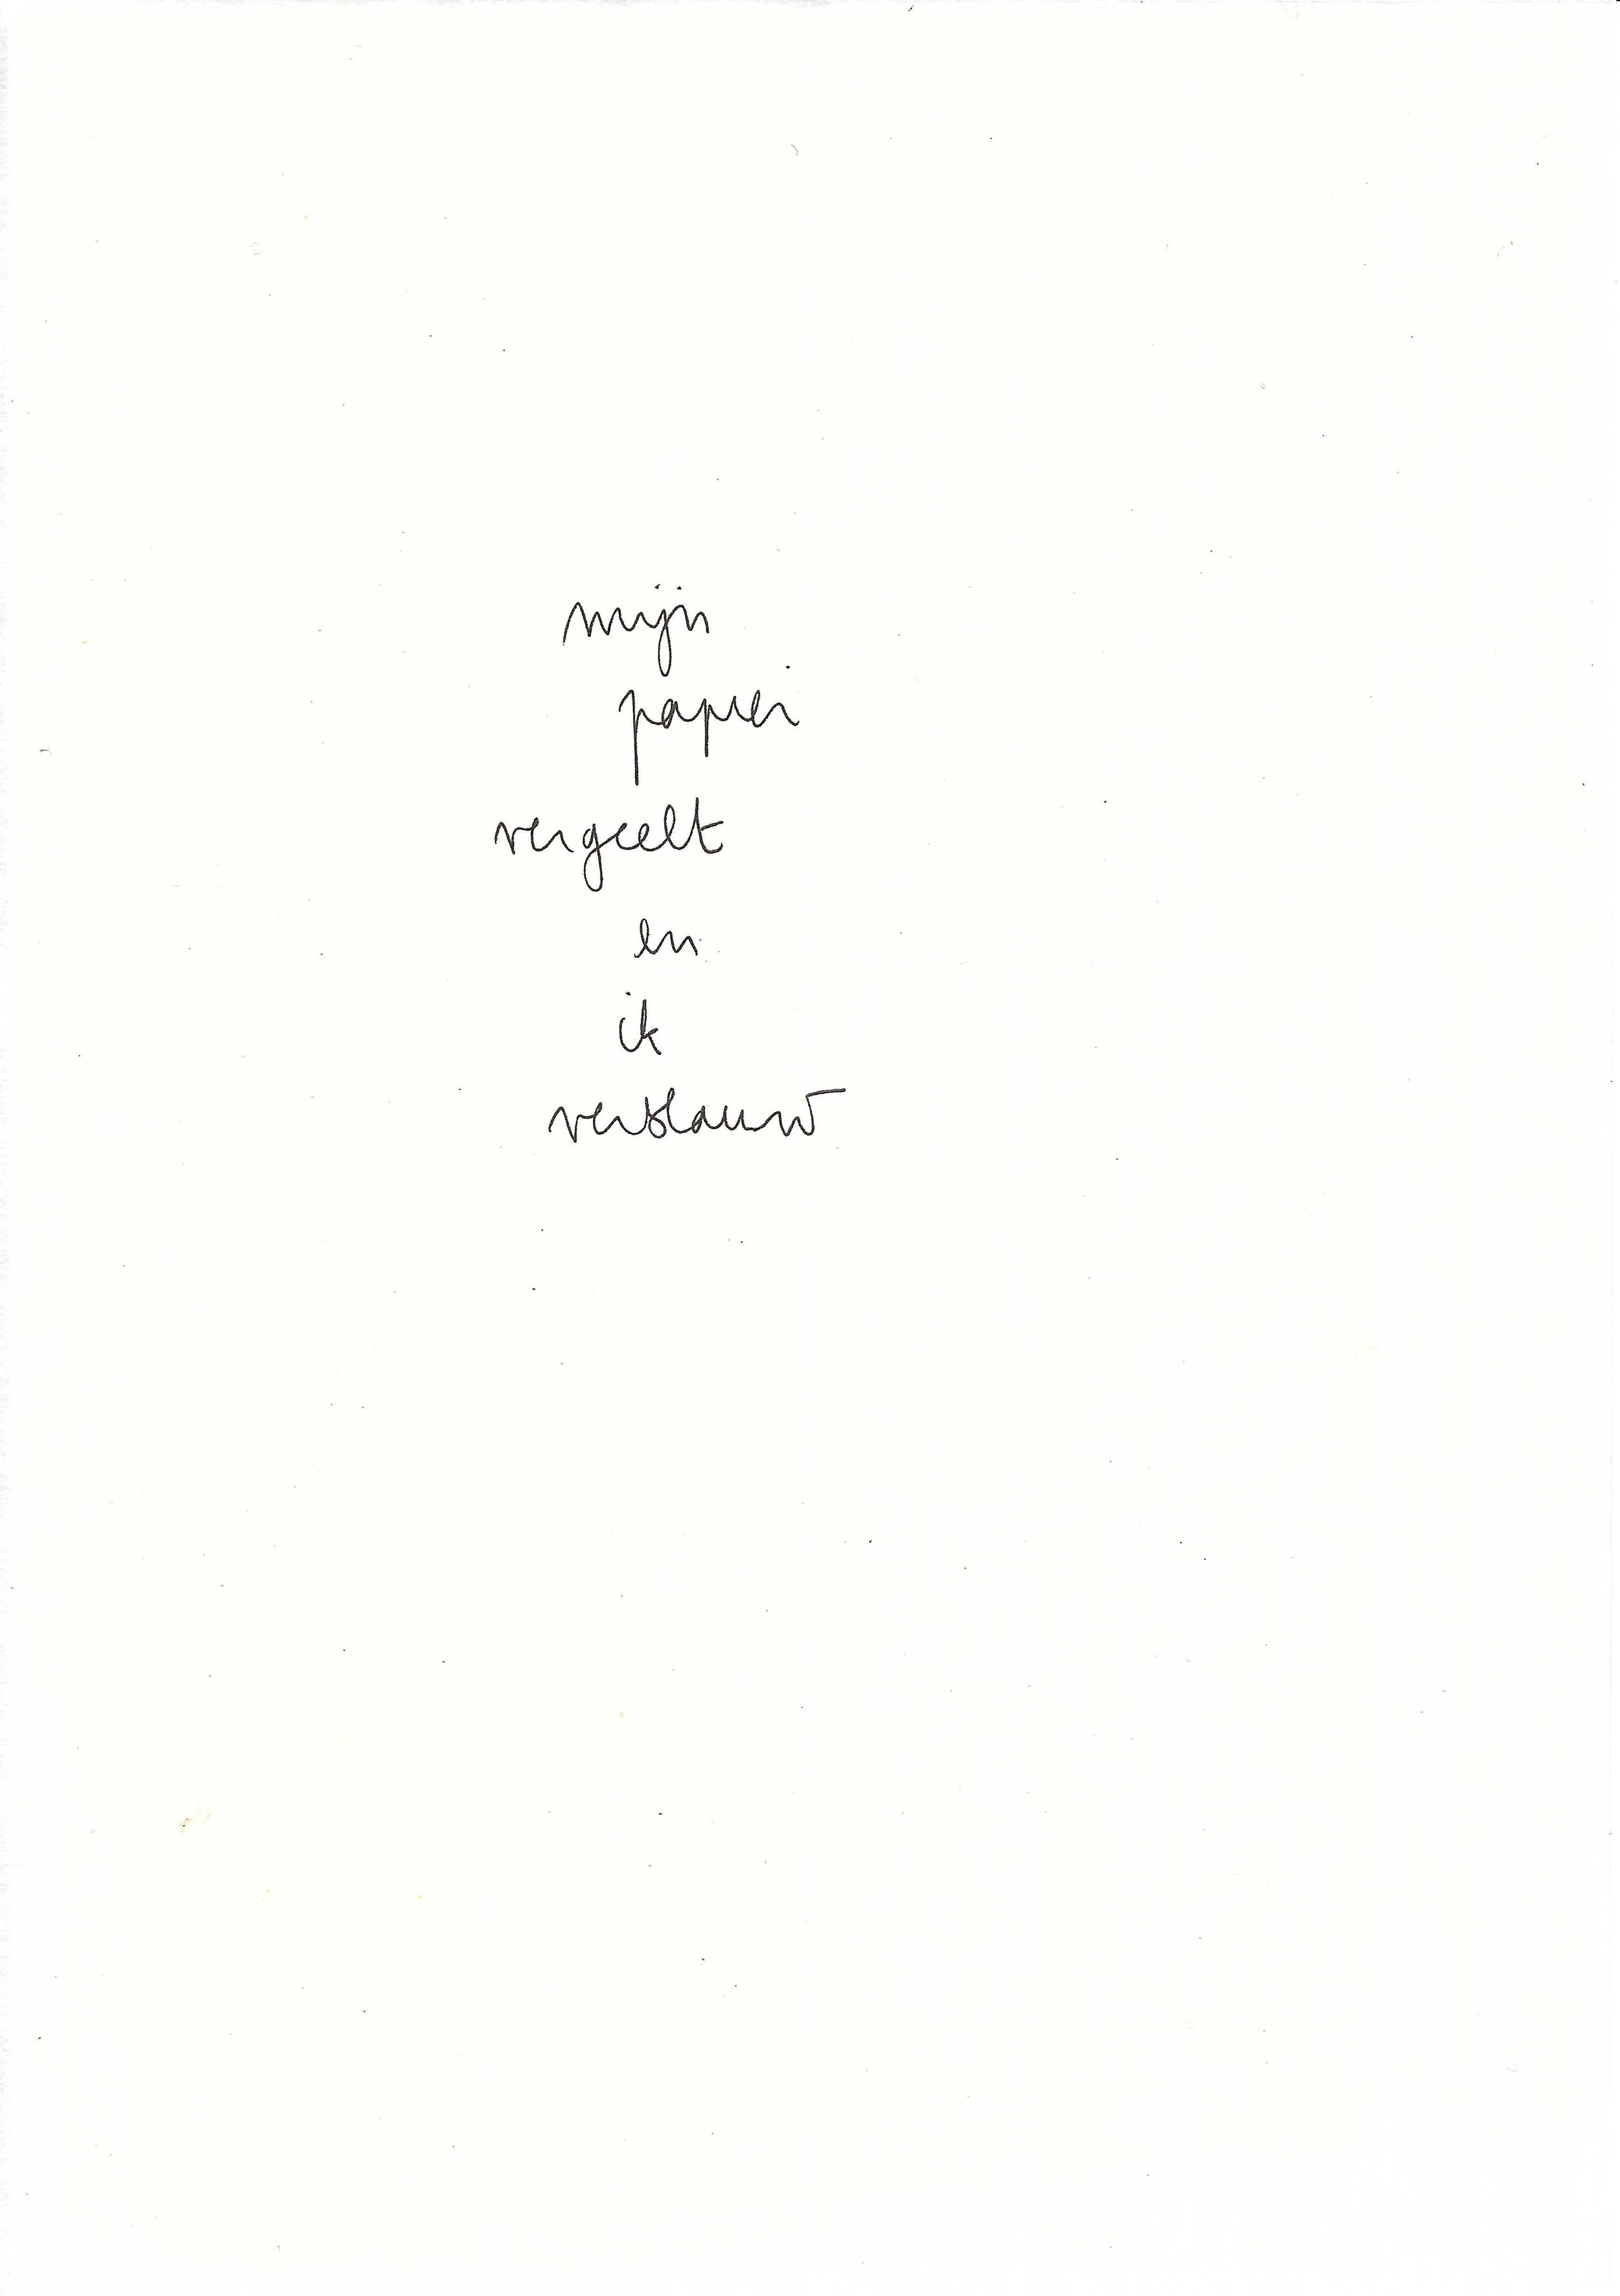 mijn
papier
vergeelt
en
ik
verblauw